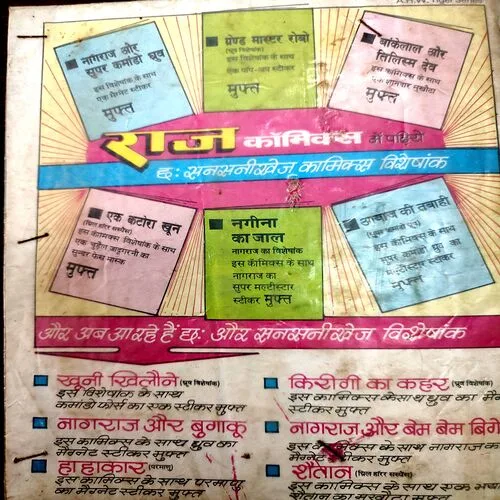 नागराज और
सुपर कमांडो ध्रुव
इस विशेषांक के साथ
एक मैग्नेट स्टीकर
मुफ्त
ग्रेण्ड मास्टर रोबो
(ध्रुव विशेषांक)
इस विशेषांक के साथ
एक पॉप-अप स्टीकर
मुफ्त
बांकेलाल और
तिलिस्म देव
इस कॉमिक्स के साथ
एक शानदार मुखौटा
मुफ्त
राज कॉमिक्स में पढ़िये
छ: सनसनीखेज कामिक्स विशेषांक
एक कटोरा खून
(थ्रिल हॉरर सस्पेंस)
इस कॉमिक्स विशेषांक के साथ
एक चुड़ैल जादूगरनी का
सुन्दर फेस मास्क
मुफ्त
नगीना
का जाल
नागराज का विशेषांक
इस कॉमिक्स के साथ
नागराज का
सुपर मल्टीस्टार
स्टीकर मुफ्त
आवाज की तबाही
इस कॉमिक्स के साथ
सुपर कमांडो ध्रुव का
मल्टीस्टार स्टीकर
मुफ्त
और अब आ रहे हैं छ: और सनसनीखेज विशेषांक
खूनी खिलौने (ध्रुव विशेषांक)
इस विशेषांक के साथ
कमांडो फोर्स का एक स्टीकर मुफ्त
किरीगी का कहर (ध्रुव विशेषांक)
इस कामिक्स के साथ ध्रुव का मैग्नेट
स्टीकर मुफ्त
नागराज और बुगाकू
इस कामिक्स के साथ ध्रुव का
मैगनेट स्टीकर मुफ्त
नागराज और बेम बेम बिगे
इस कामिक्स के साथ नागराज का
मैगनेट स्टीकर मुफ्त
हाहाकार (परमाणु)
इस कामिक्स के साथ परमाणु
का मैगनेट स्टीकर मुफ्त
शैतान (थ्रिल हॉरर सस्पेंस)
इस कामिक्स के साथ एक
शैतान का मुखौटा मुफ्त